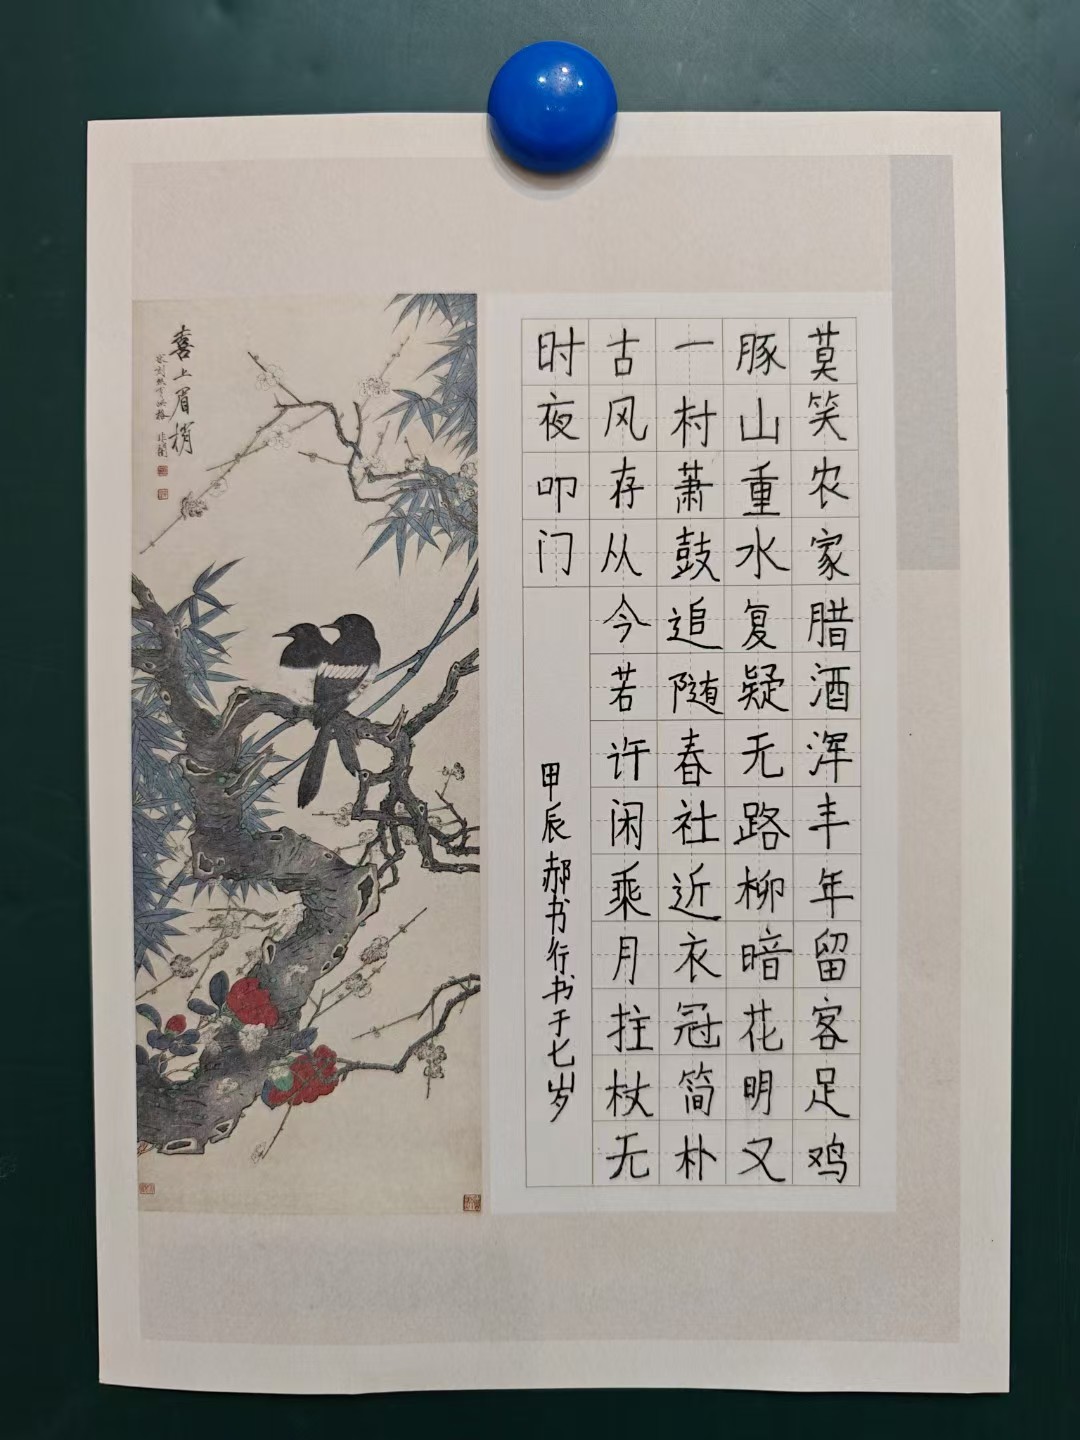 莫笑农家腊酒浑丰年留客足鸡
豚山重水复疑无路柳暗花明又
一村萧鼓追随春社近衣冠简朴
古风存从今若许闲乘月拄杖无
时夜叩门
甲辰郝书行书于七岁
喜上眉梢